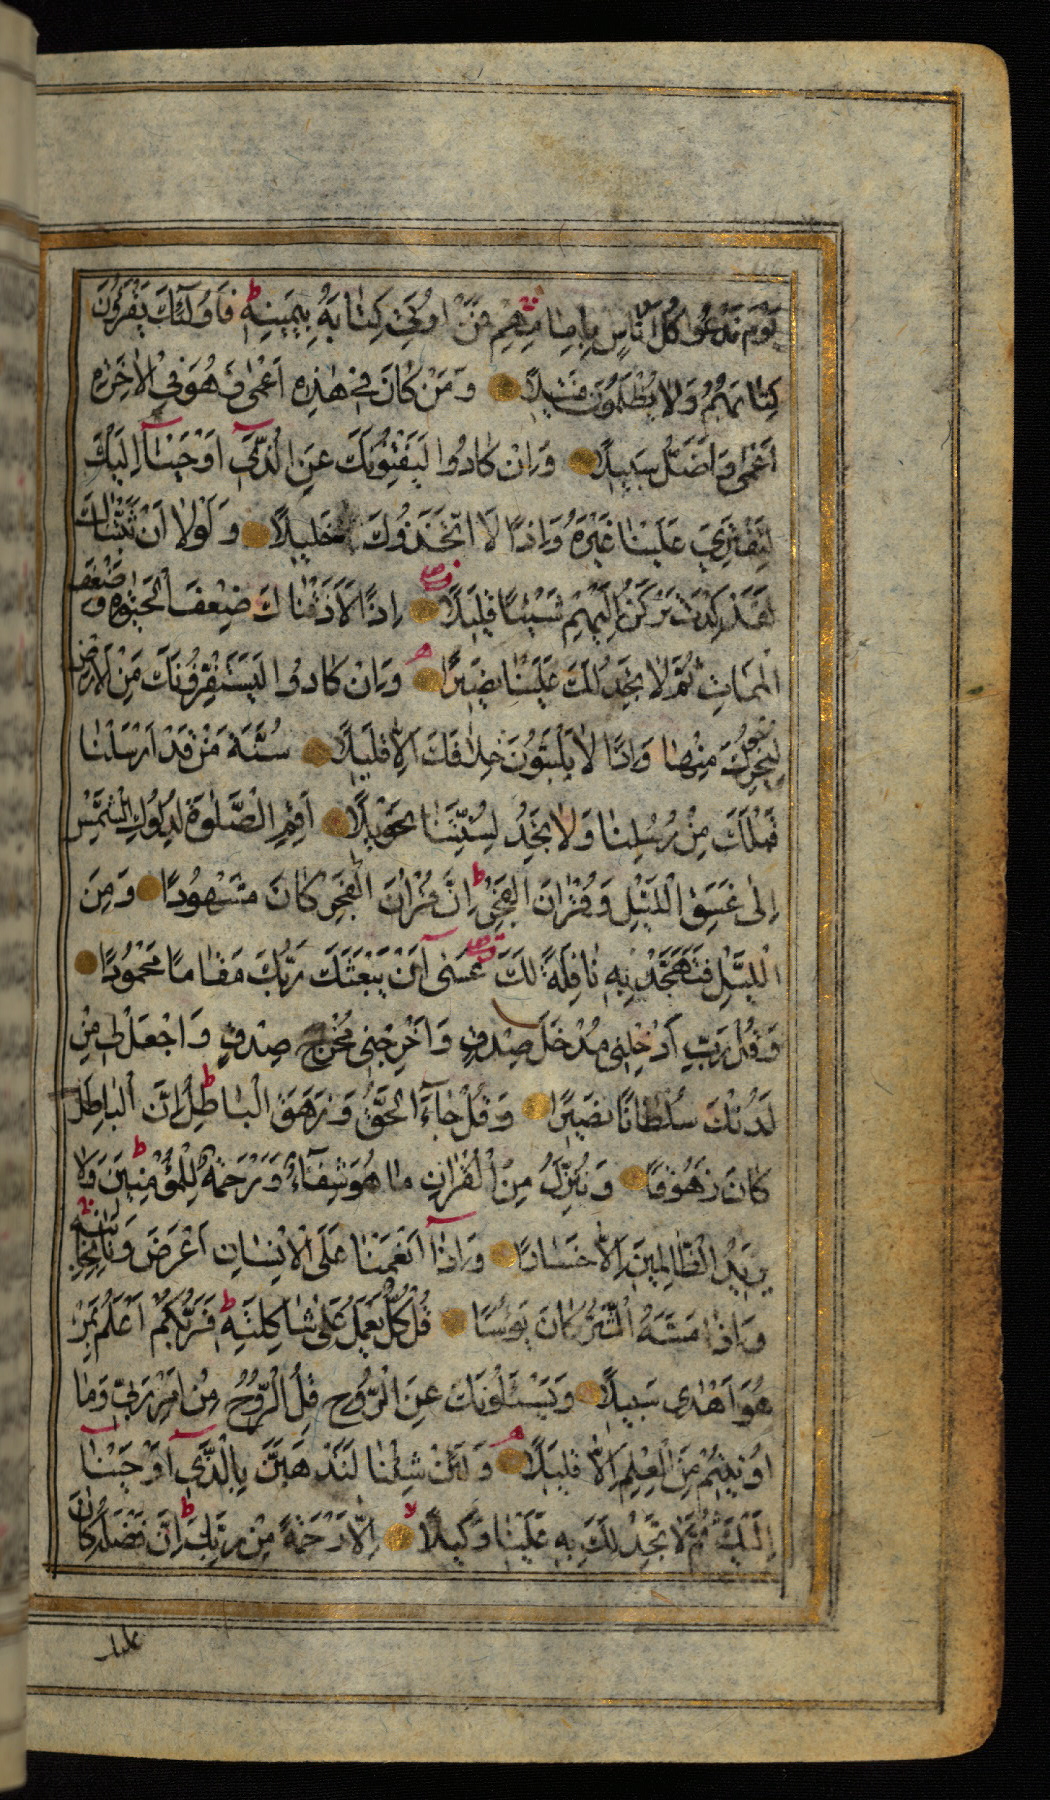 يَوْمَ نَدْعُوا كُلَّ اُنَاسٍ بِاِمَامِهِمْ فَمَنْ اُوتِيَ كِتَابَهُ بِيَمِينِهٖ ط فَاُولٰٓئِكَ يَقْرَؤُنَ
كِتَابَهُمْ وَلَا يُظْلَمُونَ فَتِيلًا وَمَنْ كَانَ فِي هٰذِهٖ اَعْمٰى فَهُوَ فِي الْاٰخِرَةِ
اَعْمٰى وَاَضَلُّ سَبِيلًا وَاِنْ كَادُوا لَيَفْتِنُونَكَ عَنِ الَّذِيٓ اَوْحَيْنَآ اِلَيْكَ
لِتَفْتَرِيَ عَلَيْنَا غَيْرَهُ وَاِذًا لَاتَّخَذُوكَ خَلِيلًا وَلَوْلَا اَنْ ثَبَّتْنَاكَ
لَقَدْ كِدْتَ تَرْكَنُ اِلَيْهِمْ شَيْئًا قَلِيلًا اِذًا لَاَذَقْنَاكَ ضِعْفَ الْحَيٰوةِ وَضِعْفَ
الْمَمَاتِ ثُمَّ لَا تَجِدُ لَكَ عَلَيْنَا نَصِيرًا وَاِنْ كَادُوا لَيَسْتَفِزُّونَكَ مِنَ الْاَرْضِ
لِيُخْرِجُوكَ مِنْهَا وَاِذًا لَا يَلْبَثُونَ خِلَافَكَ اِلَّا قَلِيلًا سُنَّةَ مَنْ قَدْ اَرْسَلْنَا
قَبْلَكَ مِنْ رُسُلِنَا وَلَا تَجِدُ لِسُنَّتِنَا تَحْوِيلًا اَقِمِ الصَّلٰوةَ لِدُلُوكِ الشَّمْسِ
اِلٰى غَسَقِ اللَّيْلِ وَقُرْاٰنَ الْفَجْرِ ط اِنَّ قُرْاٰنَ الْفَجْرِ كَانَ مَشْهُودًا وَمِنَ
اللَّيْلِ فَتَهَجَّدْ بِهٖ نَافِلَةً لَكَ عَسٰىٓ اَنْ يَبْعَثَكَ رَبُّكَ مَقَامًا مَحْمُودًا
وَقُلْ رَبِّ اَدْخِلْنِي مُدْخَلَ صِدْقٍ وَاَخْرِجْنِي مُخْرَجَ صِدْقٍ وَاجْعَلْ لِي مِنْ
لَدُنْكَ سُلْطَانًا نَصِيرًا وَقُلْ جَآءَ الْحَقُّ وَزَهَقَ الْبَاطِلُ ط اِنَّ الْبَاطِلَ
كَانَ زَهُوقًا وَنُنَزِّلُ مِنَ الْقُرْاٰنِ مَا هُوَ شِفَآءٌ وَرَحْمَةٌ لِلْمُؤْمِنِينَ ط وَلَا
يَزِيدُ الظَّالِمِينَ اِلَّا خَسَارًا وَاِذَآ اَنْعَمْنَا عَلَى الْاِنْسَانِ اَعْرَضَ وَنَاٰ بِجَانِبِهٖ
وَاِذَا مَسَّهُ الشَّرُّ كَانَ يَؤُسًا قُلْ كُلٌّ يَعْمَلُ عَلٰى شَاكِلَتِهٖ ط فَرَبُّكُمْ اَعْلَمُ بِمَنْ
هُوَ اَهْدٰى سَبِيلًا وَيَسْئَلُونَكَ عَنِ الرُّوحِ قُلِ الرُّوحُ مِنْ اَمْرِ رَبِّي وَمَا
اُوتِيتُمْ مِنَ الْعِلْمِ اِلَّا قَلِيلًا وَلَئِنْ شِئْنَا لَنَذْهَبَنَّ بِالَّذِيٓ اَوْحَيْنَآ
اِلَيْكَ ثُمَّ لَا تَجِدُ لَكَ بِهٖ عَلَيْنَا وَكِيلًا لا اِلَّا رَحْمَةً مِنْ رَبِّكَ ط اِنَّ فَضْلَهُ كَانَ
عليك